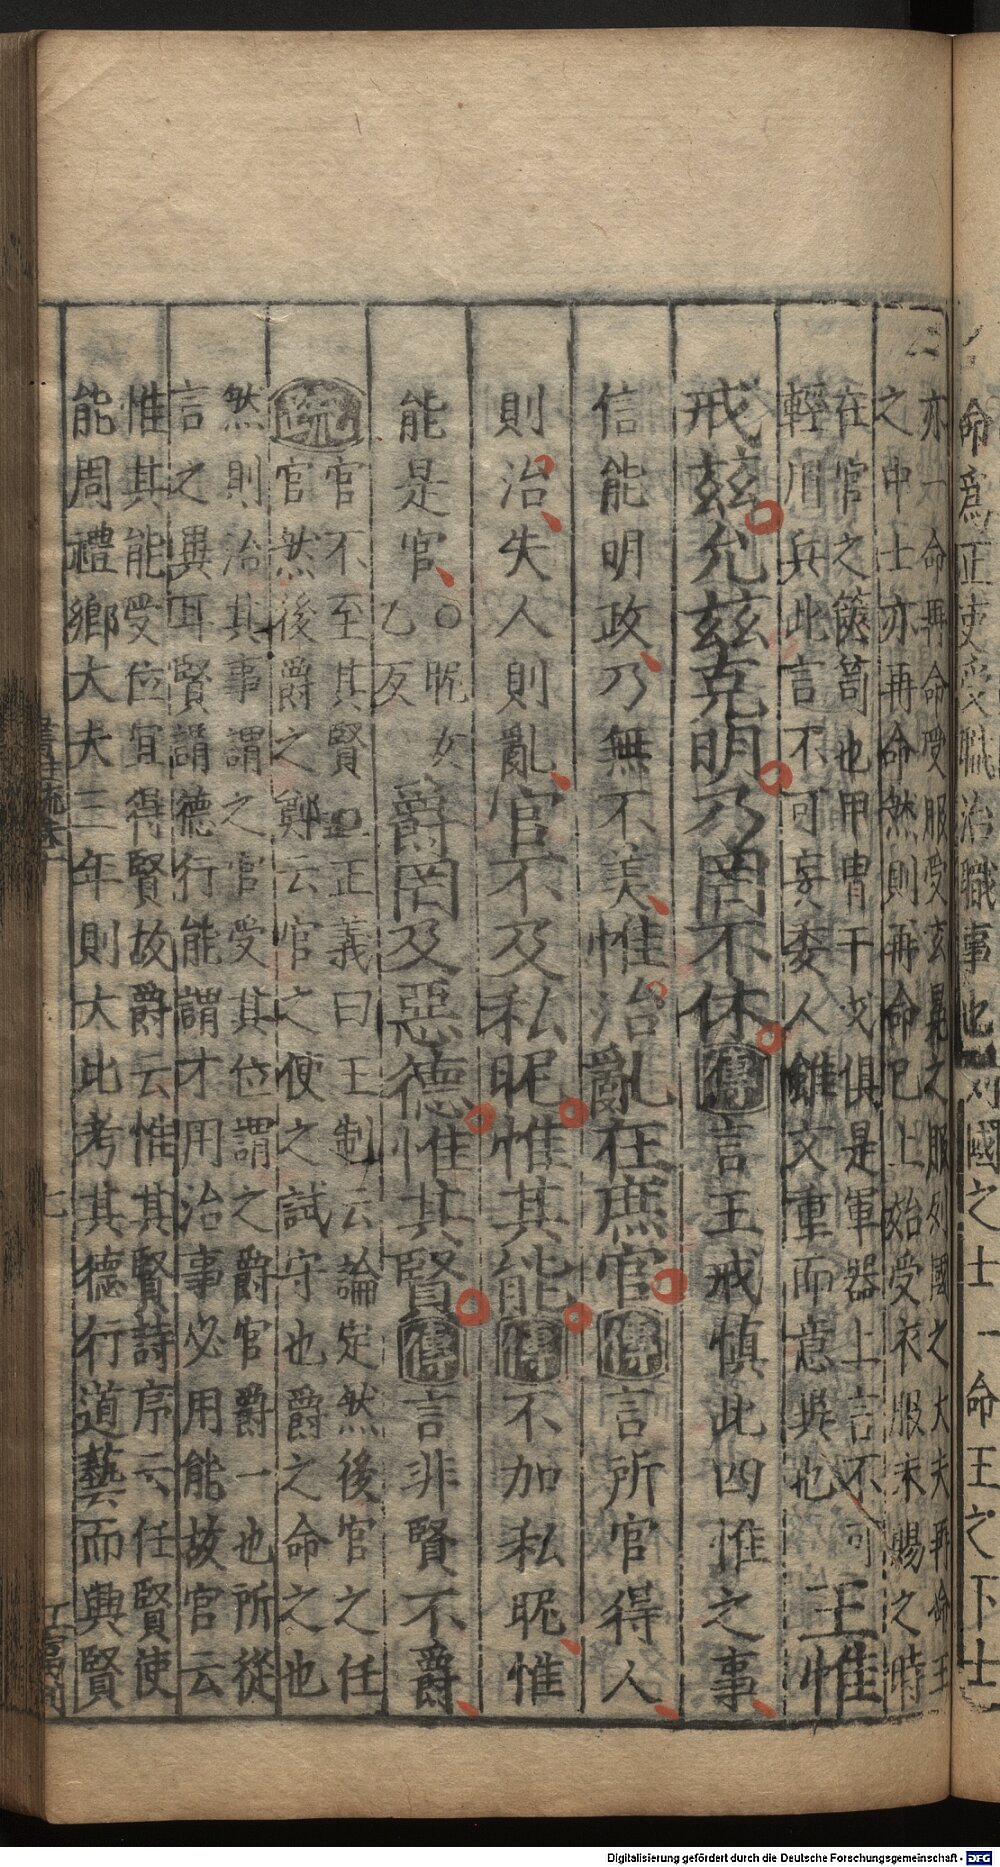 命爲正吏受職治職事也列國之士一命王之下士
亦一命再命受服受玄冕之服列國之大夫再命王
之中士亦再命然則再命已上始受衣服未賜之時
在官之篋笥也甲冑干戈俱是軍器上言不可
輕用兵此言不可妄委人雖文重而意異也
王惟
戒兹允兹克明乃罔不休傳言王戒慎此四惟之事
信能明政乃無不美惟治亂在庶官傳言所官得人
則治失人則亂官不及私昵惟其能傳不加私昵惟
能是官○昵女
乙反
爵罔及惡德惟其賢傳言非賢不爵
疏
官不至其賢正義曰王制云論定然後官之任
官然後爵之鄭云官之使之試守也爵之命之也
然則治其事謂之官受其位謂之爵官爵一也所從
言之異耳賢謂德行能謂才用治事必用能故官云
惟其能受位宜得賢故爵云惟其賢詩序云任賢使
能周禮鄉大夫三年則大比考其德行道藝而興賢
書註疏卷十
七
Digitalisierung gefördert durch die Deutsche Forschungsgemeinschaft - DFG